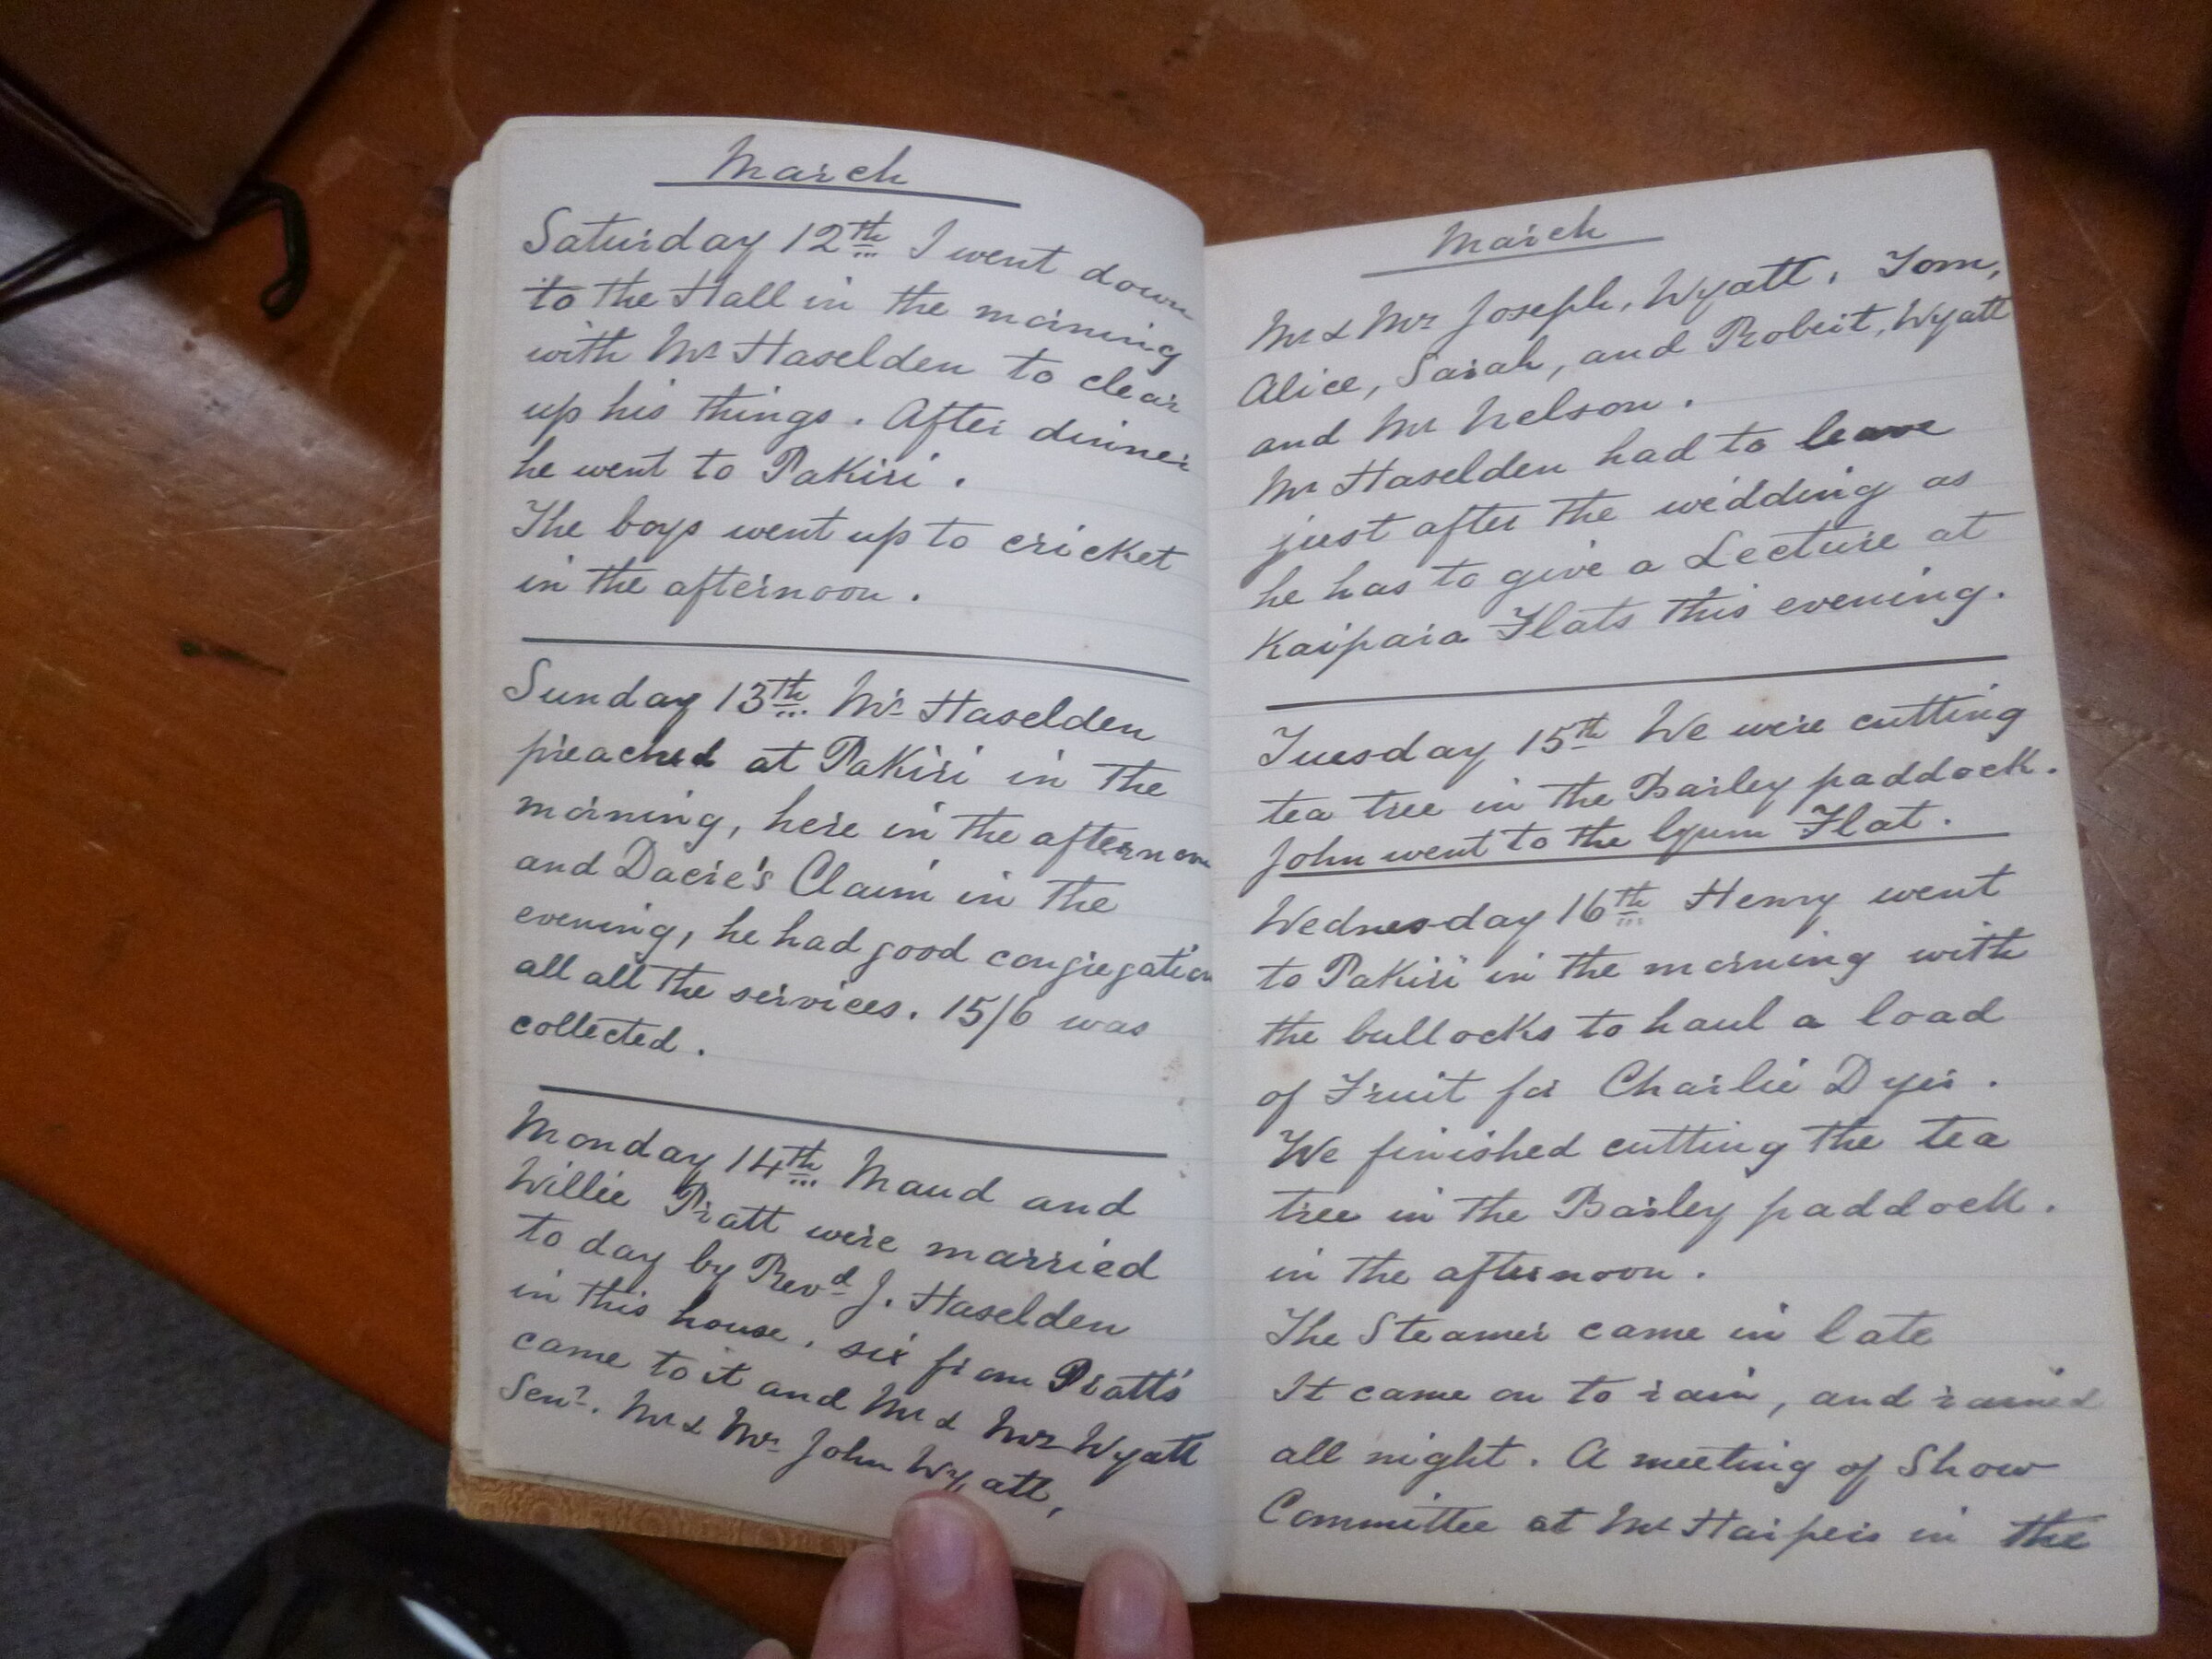 March
Saturday 12th I went down
to the Hall in the morning
with Mr Haselden to clear
up his things. After dinner
he went to Pakiri.
The boys went up to cricket
in the afternoon.
Sunday 13th Mr Haselden
preached at Pakiri in the
morning, here in the afternoon
and Dacre's Claim in the
evening, he had good congregation
all all the services. 15/6 was
collected.
Monday 14th Maud and
Willie Pratt were married
to day by Revd J. Haselden
in this house. six from Pratts'
came to it and Mr & Mrs Wyatt
Senr. Mr & Mrs John Wyatt,
March
Mr & Mrs Joseph, Wyatt, Tom,
Alice, Sarah, and Robert, Wyatt
and Mr Nelson.
Mr Haselden had to leave
just after the wedding as
he has to give a Lecture at
Kaipara Flats this evening.
Tuesday 15th We were cutting
tea tree in the Barley paddock.
John went to the Gum Flat.
Wednesday 16th Henry went
to Pakiri in the morning with
the bullocks to haul a load
of Fruit for Charlie Dyer.
We finished cutting the tea
tree in the Barley paddock.
in the afternoon.
The Steamer came in late
It came on to rain, and rained
all night. A meeting of Show
Committee at Mr Harpers in the